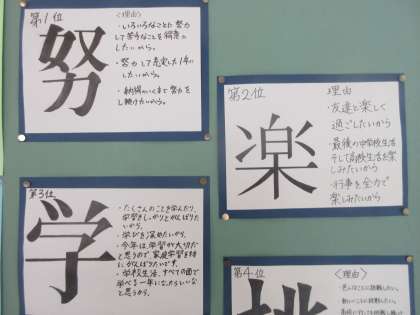 第1位
努
〈理由〉
・いろいろなことに努力
して苦手なことを得意に
したいから。
・努力して充実した1年に
したいから。
・納得のいくまで努力を
し続けたいから。
第2位
楽
理由
・友達と楽しく
過ごしたいから
・最後の中学校生活
そして高校生活を楽
しみたいから
・行事を全力で
楽しみたいから
第3位
学
・たくさんのことを学んだり、
学習をしっかりとがんばりた
いから。
・学びを深めたいから。
・今年は学習が大切だ
と思うので、家庭学習を特
にがんばりたいです。
・学校生活、すべての面で
学べる一年になったらいいな
と思うから。
第4位
〈理由〉